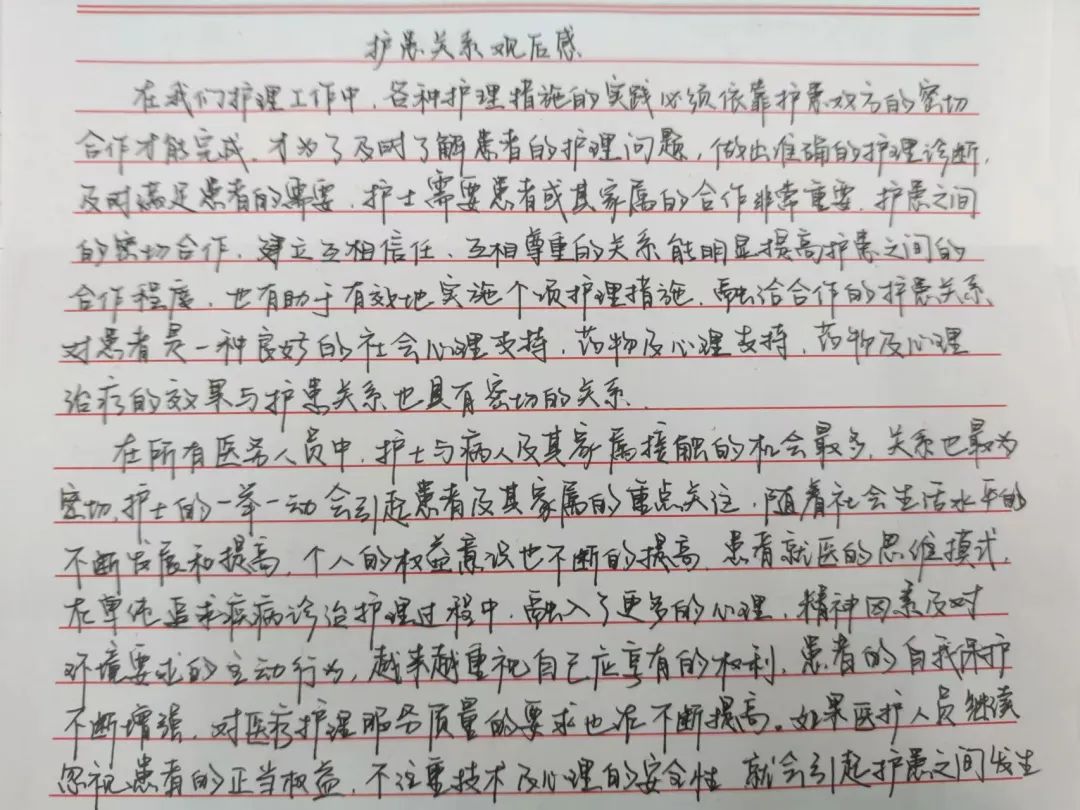 护患关系观后感
在我们护理工作中，各种护理措施的实践必须依靠护患双方的密切
合作才能完成，才为了及时了解患者的护理问题，做出准确的护理诊断，
及时满足患者的需要，护士需要患者或其家属的合作非常重要，护患之间
的密切合作，建立互相信任、互相尊重的关系能明显提高护患之间的
合作程度，也有助于有效地实施个项护理措施，融洽合作的护患关系
对患者是一种良好的社会心理支持，药物及心理支持，药物及心理
治疗的效果与护患关系也具有密切的关系．
在所有医务人员中，护士与病人及其家属接触的机会最多，关系也最为
密切，护士的一举一动会引起患者及其家属的重点关注，随着社会生活水平的
不断发展和提高，个人的权益意识也不断的提高，患者就医的思维模式，
在单纯追求疾病诊治护理过程中，融入了更多的心理，精神因素及对
环境要求的主动行为，越来越重视自己应享有的权利，患者的自我保护
不断增强，对医疗护理服务质量的要求也在不断提高。如果医护人员继续
忽视患者的正当权益，不注重技术及心理的安全性 就会引起护患之间发生